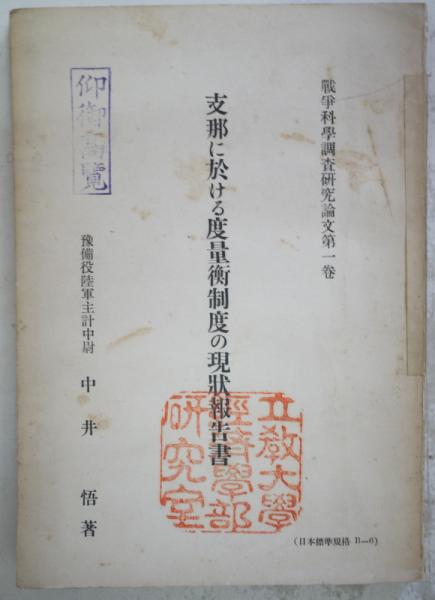 戰爭科學調査研究論文第一卷
支那に於ける度量衡制度の現狀報告書
豫備役陸軍主計中尉 中井 悟著
仰御高覽
立教大學
經濟學部
研究室
(日本標準規格 B—6)